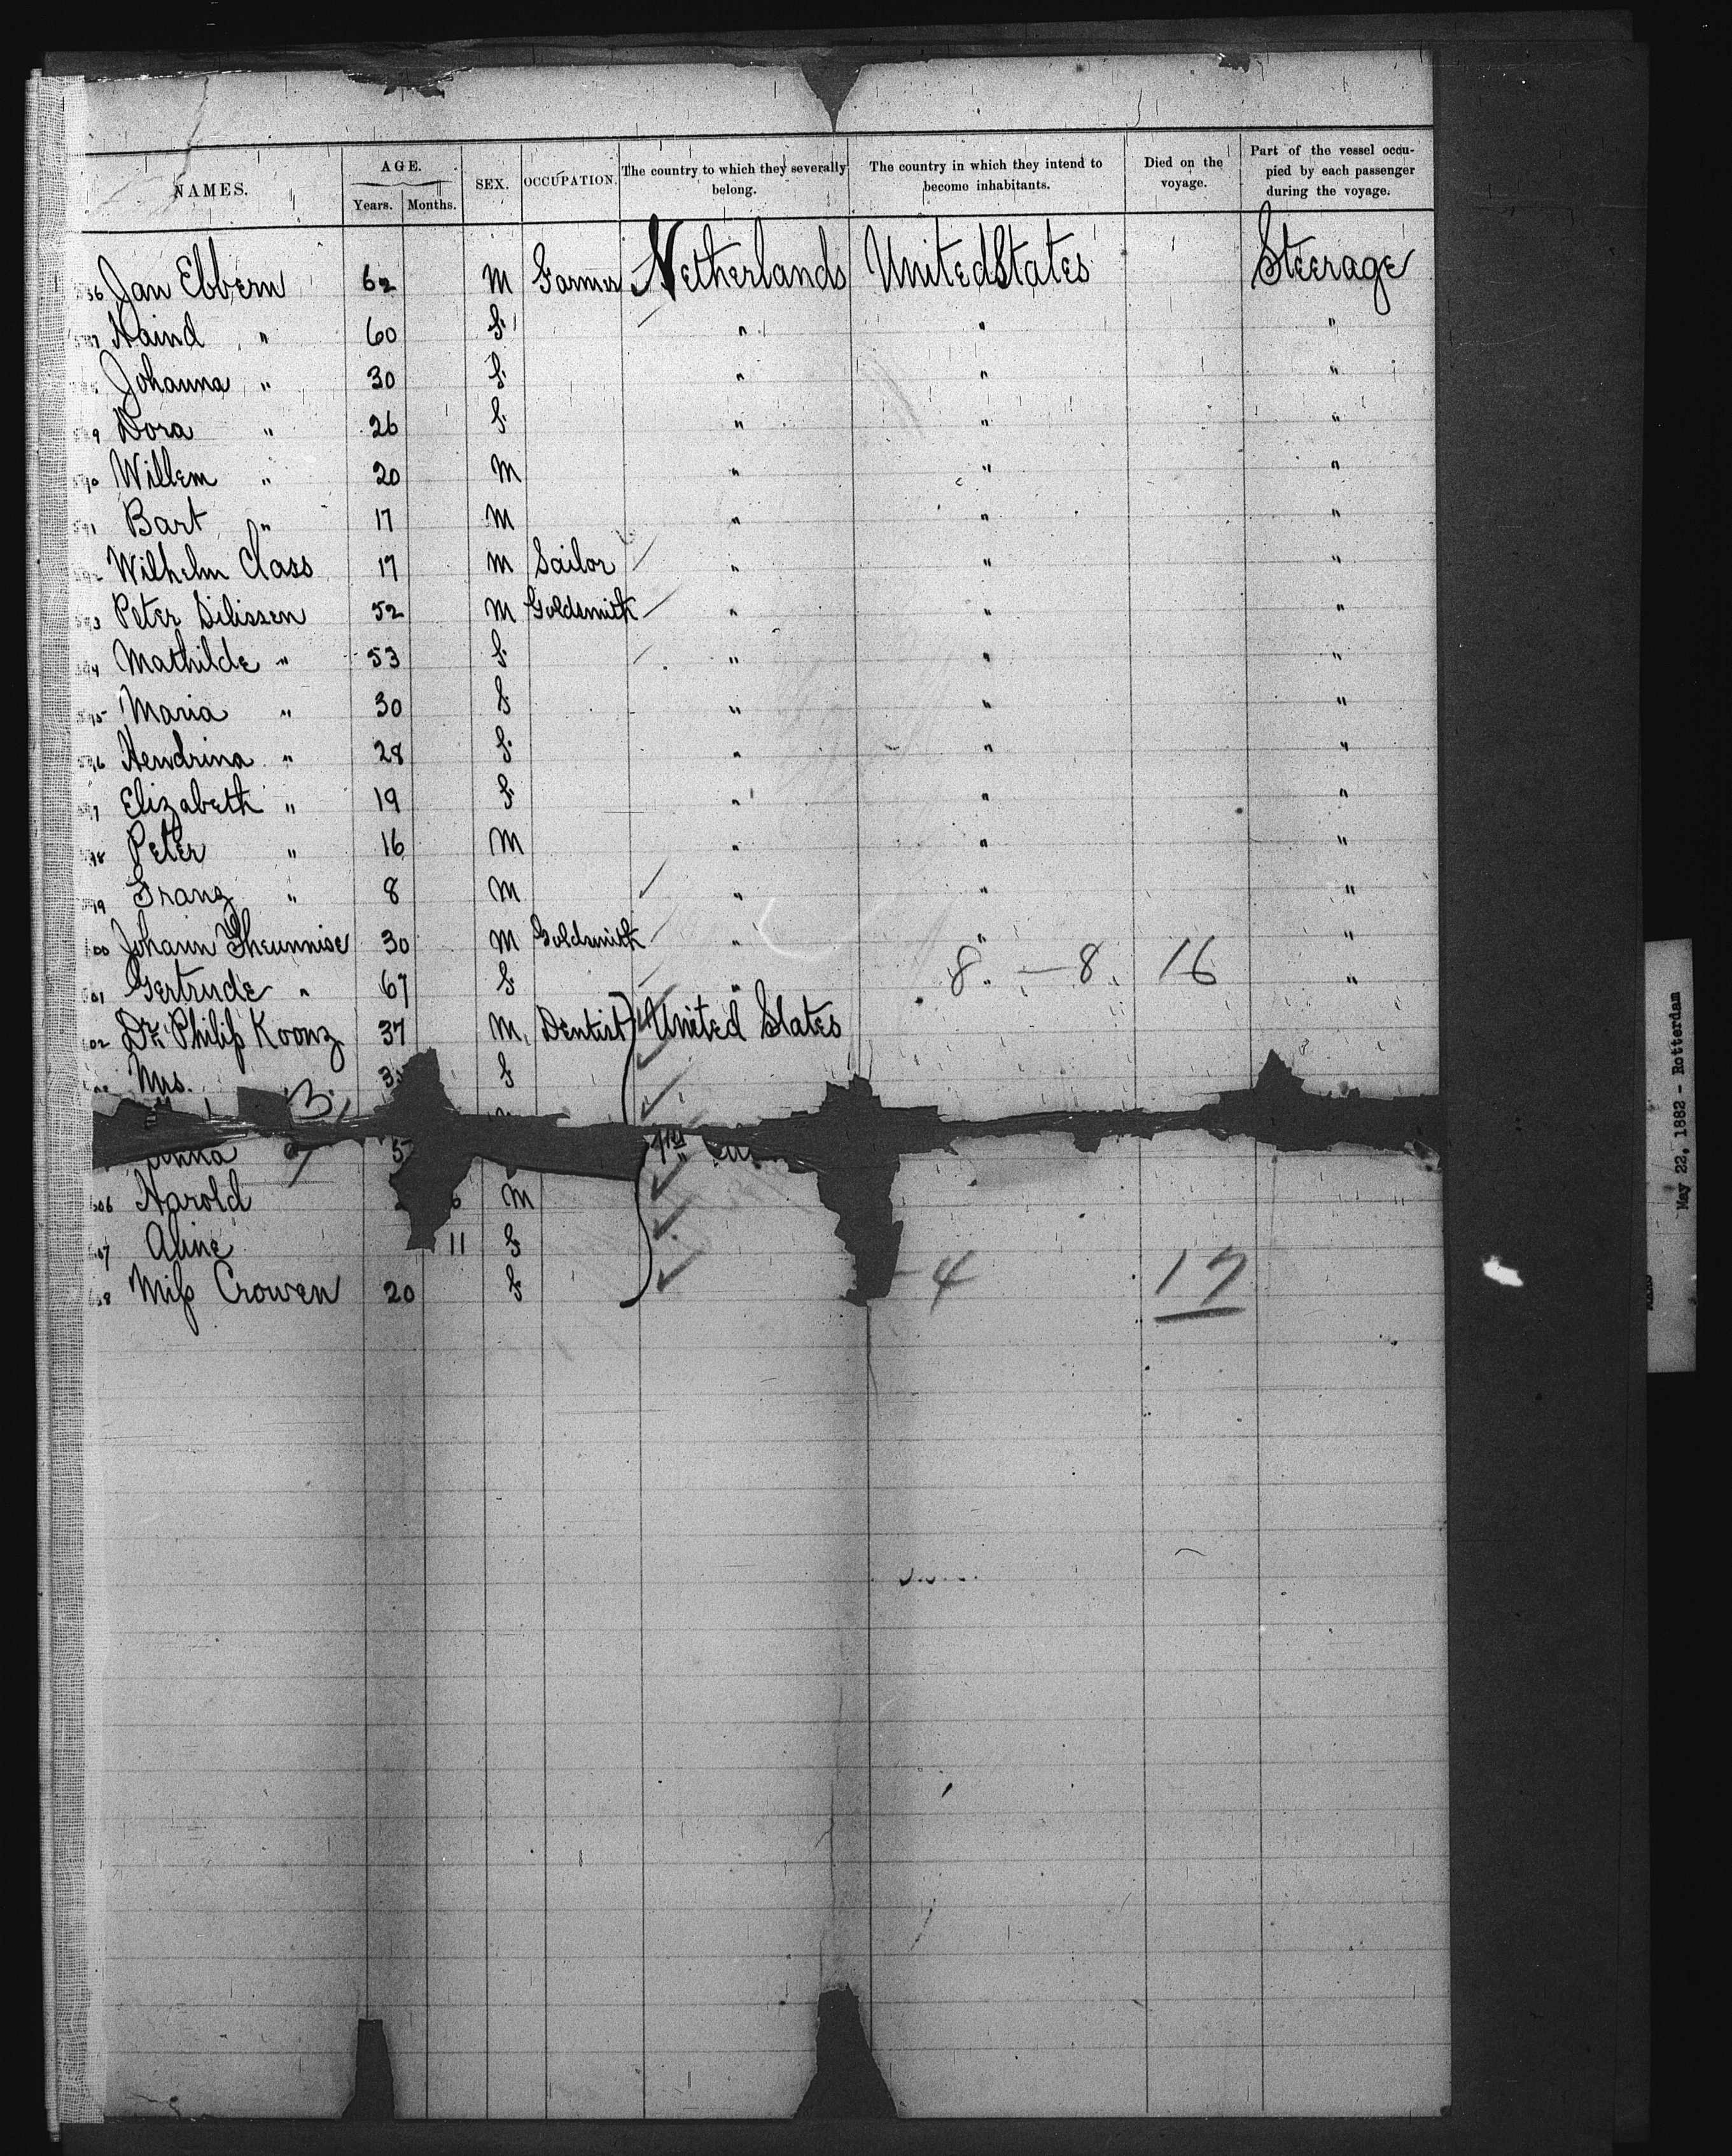 NAMES. AGE. Years. Months. SEX. OCCUPATION. The country to which they severally belong. The country in which they intend to become inhabitants. Died on the voyage. Part of the vessel occupied by each passenger during the voyage.
Jan Ebbern 62 M Farmer Netherlands United States Steerage
Haind " 60 F " " "
Johanna " 30 F " " "
Dora " 26 F " " "
Willem " 20 M " " "
Bart " 17 M " " "
Wilhelm Class 17 M Sailor " " "
Peter Dilissen 52 M Goldsmith " " "
594 Mathilde " 53 F " " "
595 Maria " 30 F " " "
596 Hendrina " 28 F " " "
Elizabeth " 19 F " " "
Peter " 16 M " " "
Franz " 8 M " " "
600 Johann Theunnise 30 M Goldsmith " " "
601 Gertrude " 67 F " 8. — 8. 16 "
602 Dr. Philip Koonz 37 M. Dentist United States
Mrs. F
606 Harold M
607 Aline 11 F
608 Miss Crowen 20 F – 4 17
May 22, 1882 - Rotterdam